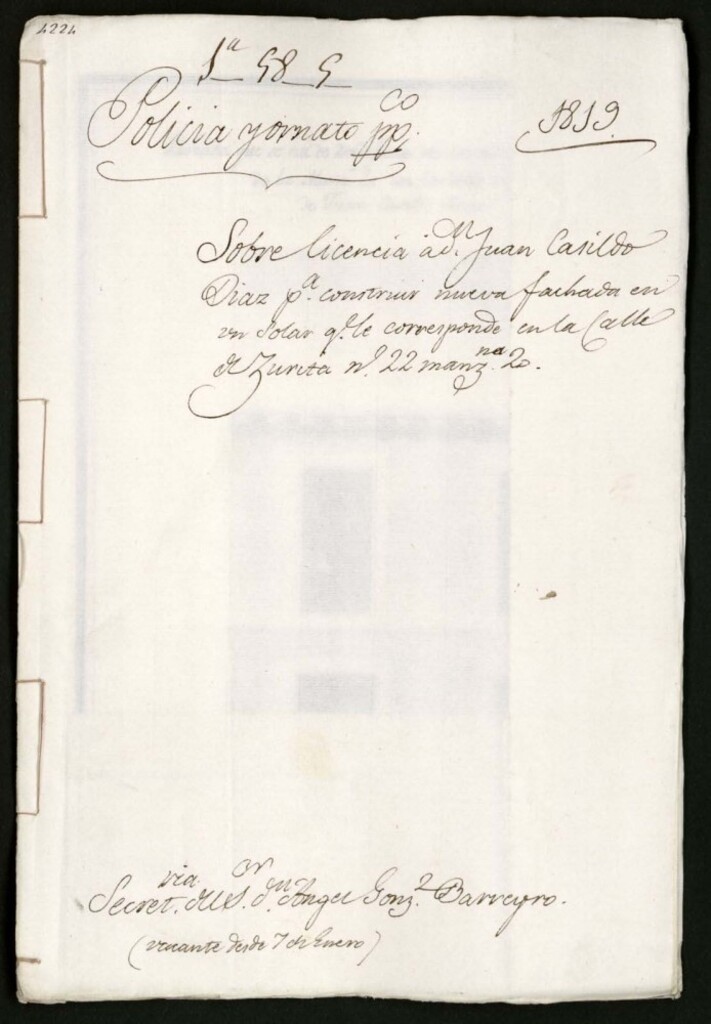 4224
1ª 58 5
Policia y ornato ppco.
1819
Sobre licencia a Dn. Juan Casildo
Diaz pª. construir nueva fachada en
un solar qe. le corresponde en la Calle
de Zurita nº. 22 manzna. 20.
Secretria. del Sor. dn. Angel Gonzz. Barreyro.
(vacante desde 7 de Enero)